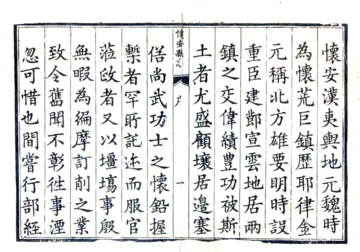 懷安漢夷輿地元魏時
為懷荒巨鎮歷耶律金
元稱北方雄要明時設
重臣建鄣宣雲地居兩
鎮之交偉績豐功被斯
土者尤盛顧壤居邊塞
俗尚武功士之懷鉛握
槧者罕所託迹而服官
蒞政者又以壃場事殷
無暇為編摩訂削之業
致令舊聞不彰徃事湮
忽可惜也間嘗行部經
懷安縣志
序
一